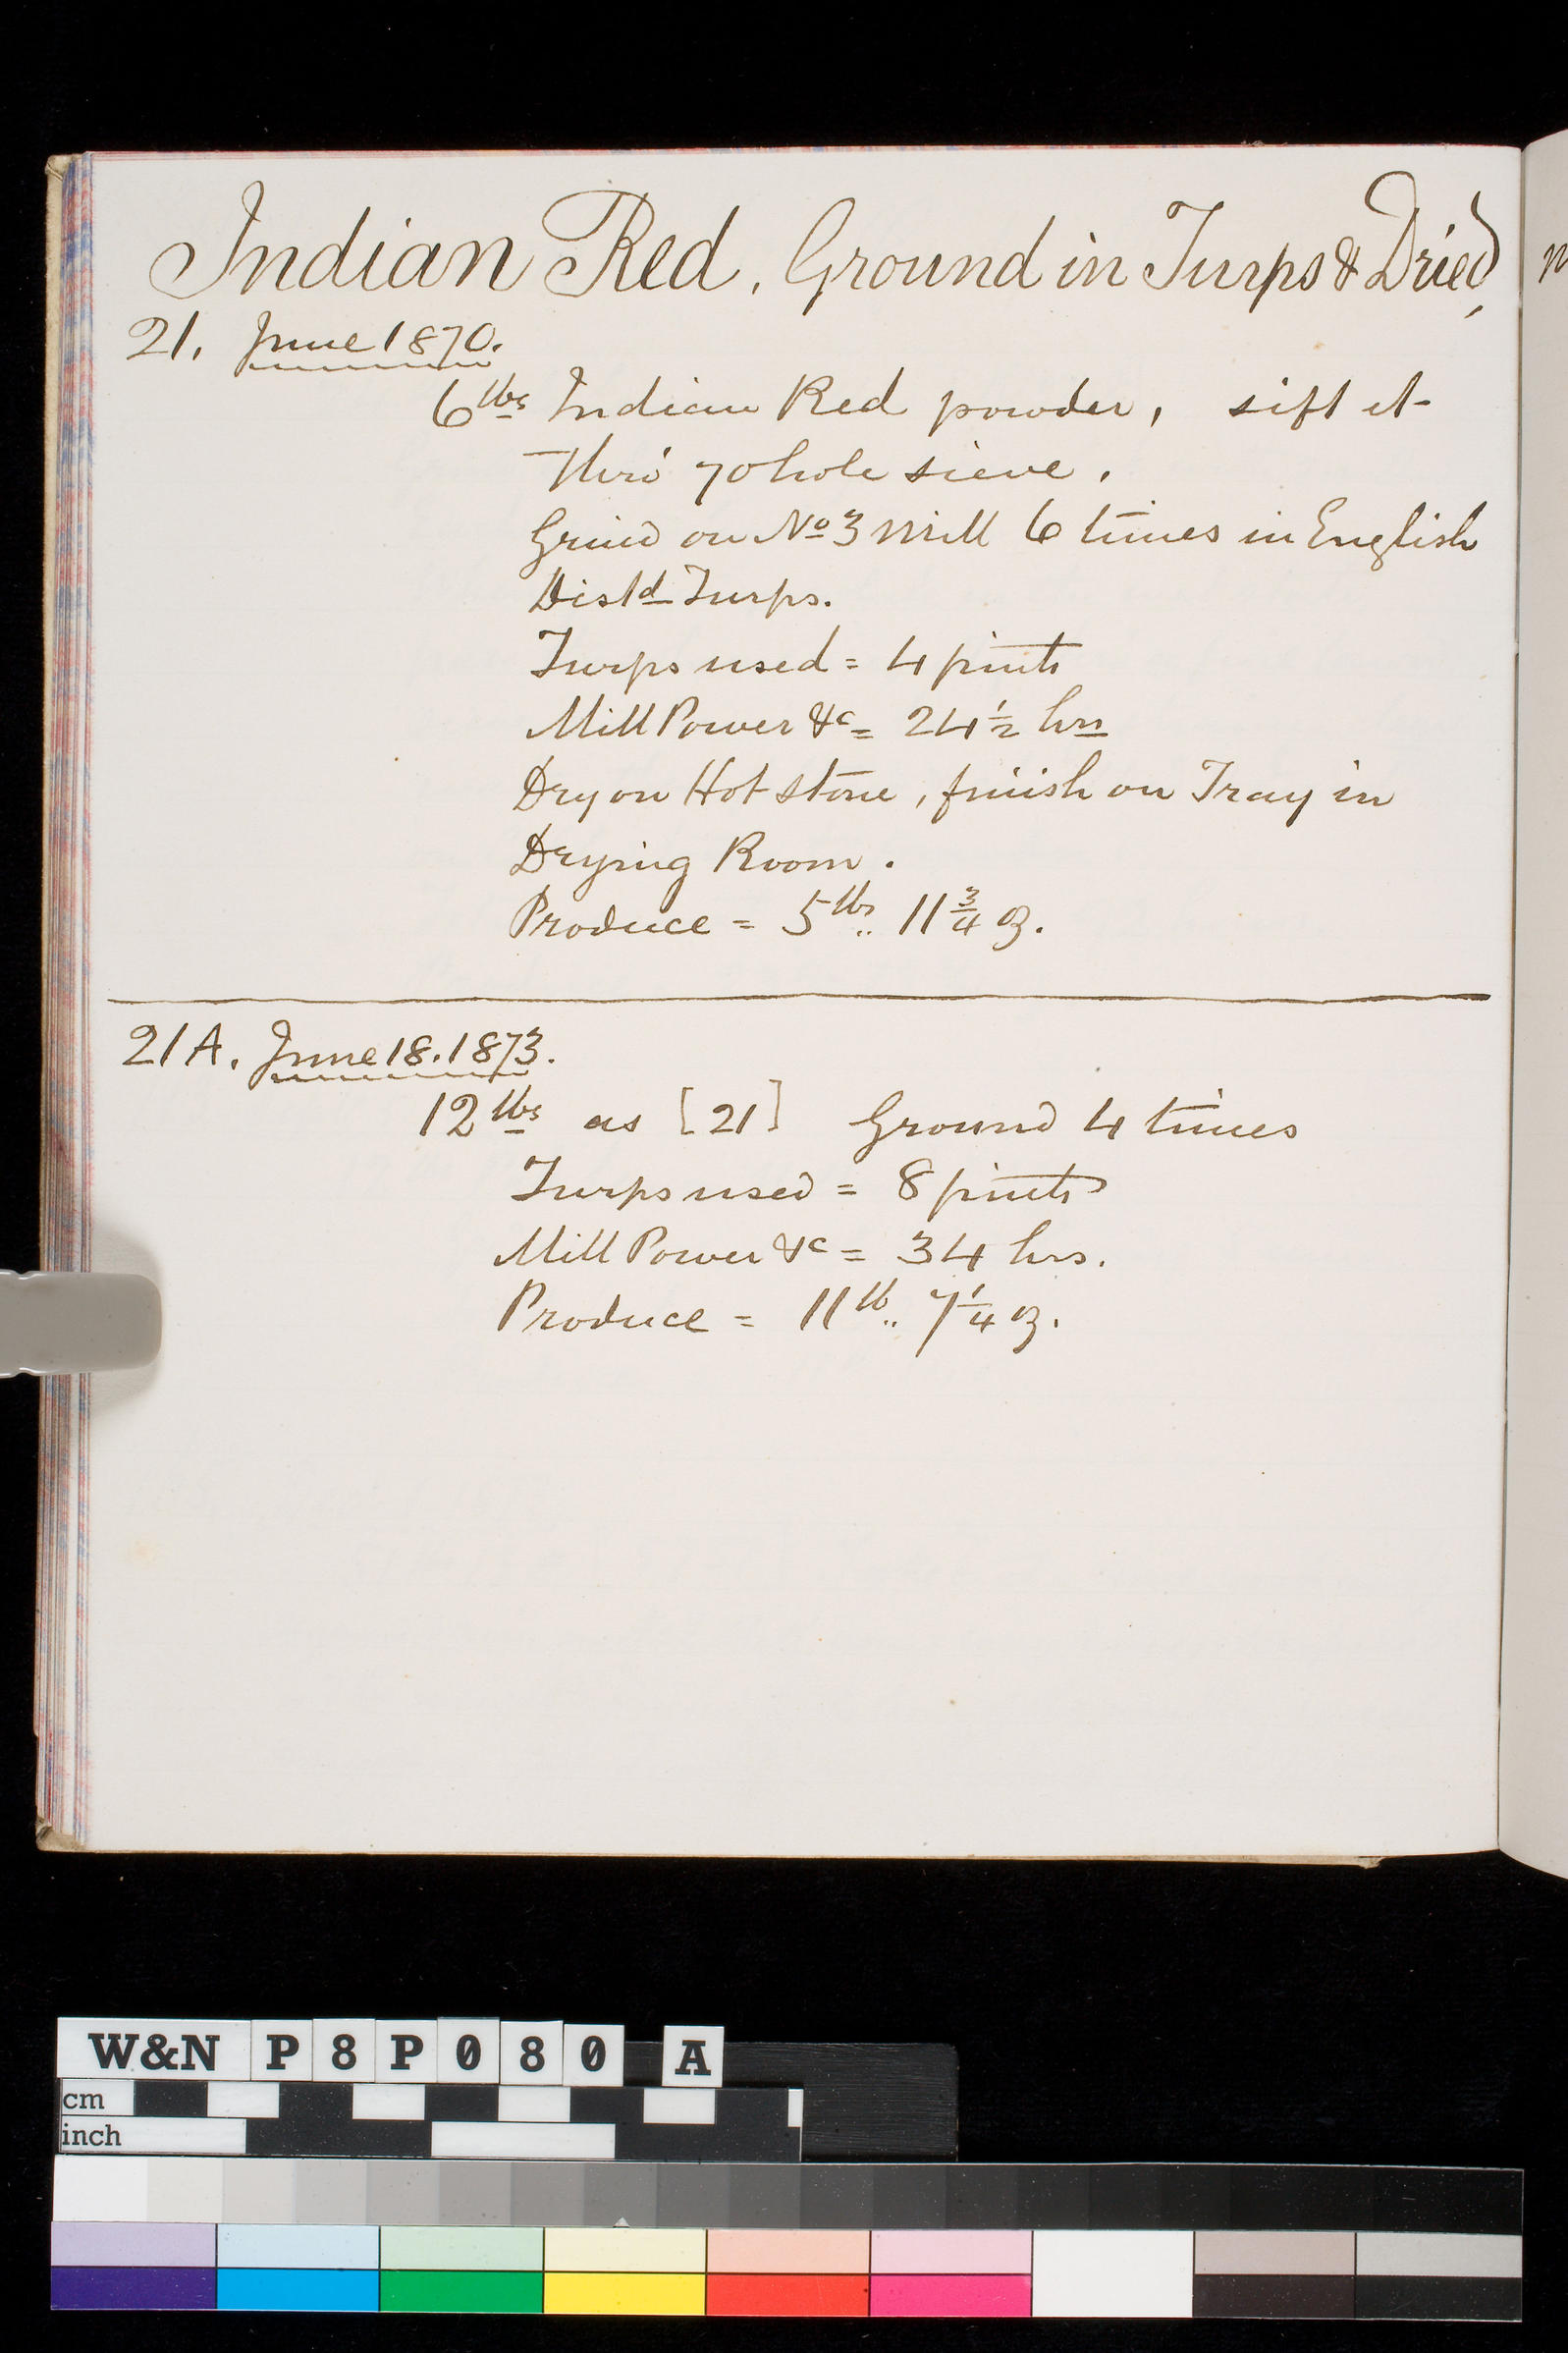 Indian Red, Ground in Turps & Dried,
21. June 1870.
6 lbs Indian Red powder, sift it
thro' 70 hole sieve.
Grind on No 3 Mill 6 times in English
Distd Turps.
Turps used = 4 pints
Mill Power &c = 24 1/2 hrs
Dry on Hot stone, finish on Tray in
Drying Room.
Produce = 5 lbs.. 11 3/4 oz.
21A. June 18. 1873.
12 lbs as [21] Ground 4 times
Turps used = 8 pints
Mill Power &c = 34 hrs.
Produce = 11 lb.. 7 1/4 oz.
W&N P8P080 A
cm
inch